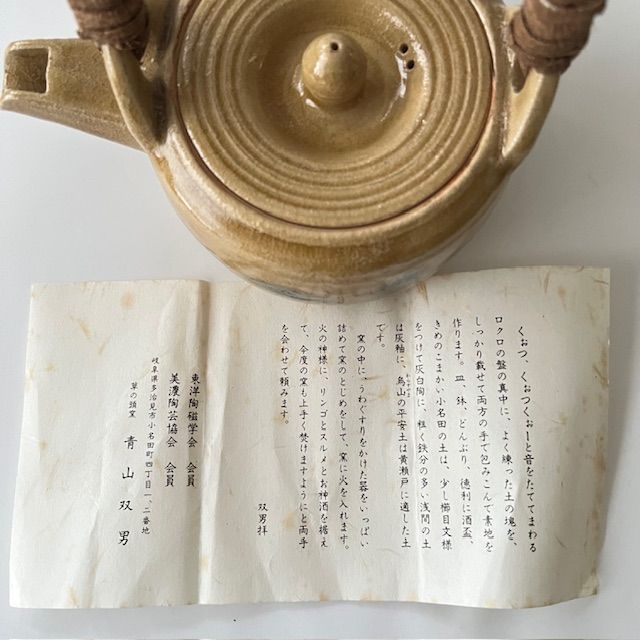 くぉっ、くぉっくぉーと音をたててまわる
ロクロの盤の真中に、よく練った土の塊を、
しっかり載せて両方の手で包みこんで素地を
作ります。皿、鉢、どんぶり、徳利に酒盃、
きめのこまかい小名田の土は、少し櫛目文様
をつけて灰白陶に、粗く鉄分の多い浅間の土
は灰釉に、烏山の平安土は黄瀬戸に適した土
です。
窯の中に、うわぐすりをかけた器をいっぱい
詰めて窯のとじめをして、窯に火を入れます。
火の神様に、リンゴとスルメとお神酒を据え
て、今度の窯も上手く焚けますようにと両手
を会わせて頼みます。
双男拝
東洋陶磁学会 会員
美濃陶芸協会 会員
岐阜県多治見市小名田町四丁目一、二番地
草の頭窯 青山双男